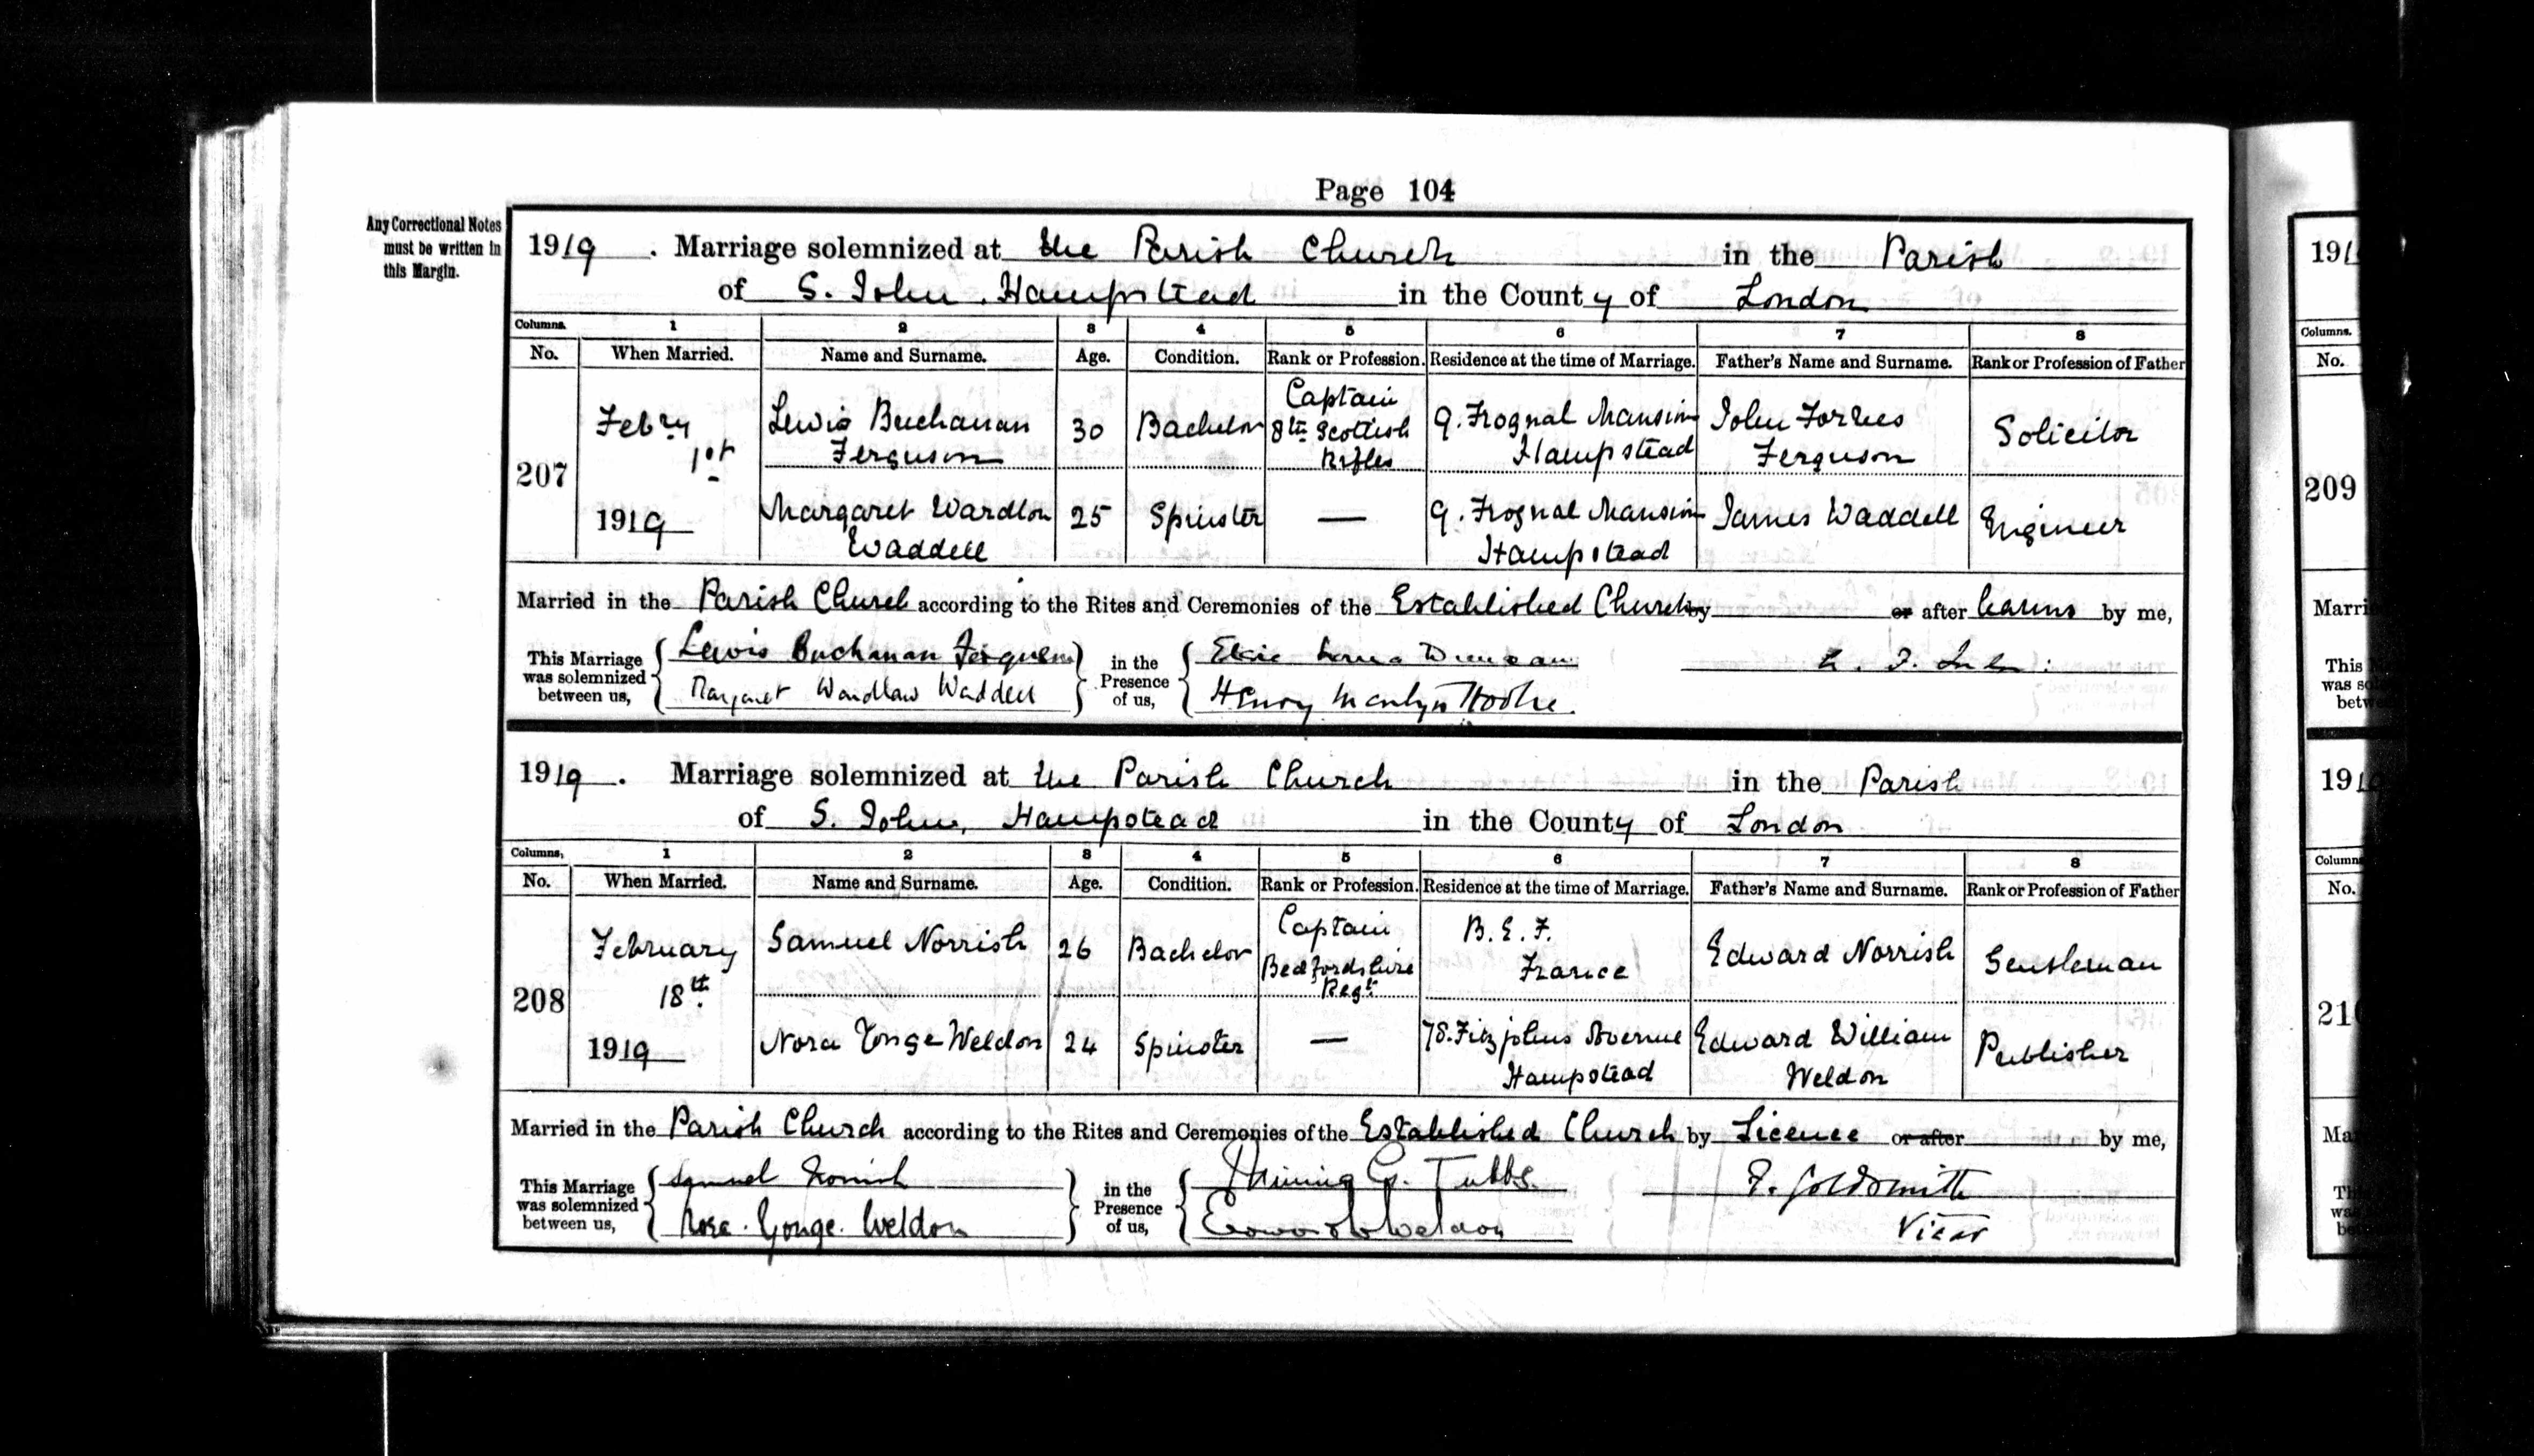 Page 104
Any Correctional Notes
must be written in
this Margin.
1919. Marriage solemnized at the Parish Church in the Parish
of S. John, Hampstead in the County of London
Columns. 1 2 3 4 5 6 7 8
No. When Married. Name and Surname. Age. Condition. Rank or Profession. Residence at the time of Marriage. Father's Name and Surname. Rank or Profession of Father
207 Febry 1st 1919
Lewis Buchanan Ferguson 30 Bachelor Captain 8th Scottish Rifles 9. Frognal Mansion Hampstead John Forbes Ferguson Solicitor
Margaret Wardlow Waddell 25 Spinster — 9. Frognal Mansion Hampstead James Waddell Engineer
Married in the Parish Church according to the Rites and Ceremonies of the Established Church by or after banns by me,
This Marriage was solemnized between us, Lewis Buchanan Ferguson in the Presence of us, Elsie Duncan
Margaret Wardlaw Waddell Henry
1919. Marriage solemnized at the Parish Church in the Parish
of S. John, Hampstead in the County of London
Columns. 1 2 3 4 5 6 7 8
No. When Married. Name and Surname. Age. Condition. Rank or Profession. Residence at the time of Marriage. Father's Name and Surname. Rank or Profession of Father
208 February 18th 1919
Samuel Norrish 26 Bachelor Captain Bedfordshire Regt. B.E.F. France Edward Norrish Gentleman
Nora Yonge Weldon 24 Spinster — 78. Fitzjohns Avenue Hampstead Edward William Weldon Publisher
Married in the Parish Church according to the Rites and Ceremonies of the Established Church by Licence or after by me,
This Marriage was solemnized between us, Samuel Norrish in the Presence of us, G. Tubbs. F. Goldsmith
Nora Yonge Weldon Weldon Vicar
191
Columns.
No.
209
Marri
This
was so
betw
191
Column
No.
210
Ma
Th
wa
be